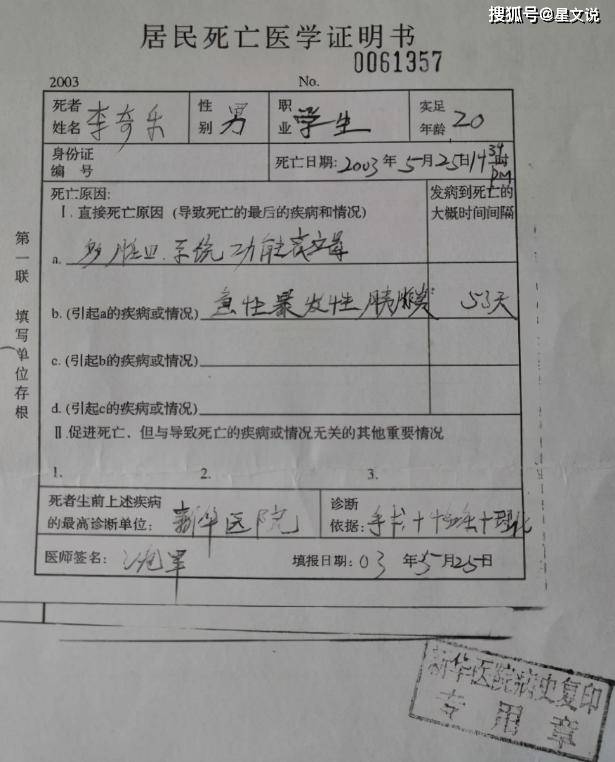 搜狐号@星文说
居民死亡医学证明书
0061357
2003 No.
死者姓名 李奇乐 性别 男 职业 学生 实足年龄 20
身份证编号 死亡日期:2003年5月25日14时39 PM
死亡原因: 发病到死亡的大概时间间隔
I.直接死亡原因 (导致死亡的最后的疾病和情况)
a. 多脏器系统功能衰竭
b.(引起a的疾病或情况) 急性暴发性胰腺炎 53天
c.(引起b的疾病或情况)
d.(引起c的疾病或情况)
II.促进死亡、但与导致死亡的疾病或情况无关的其他重要情况
1. 2. 3.
死者生前上述疾病的最高诊断单位: 新华医院 诊断依据: 手术+ +理化
医师签名: 填报日期:03年5月25日
第一联 填写单位存根
新华医院病史复印
专用章